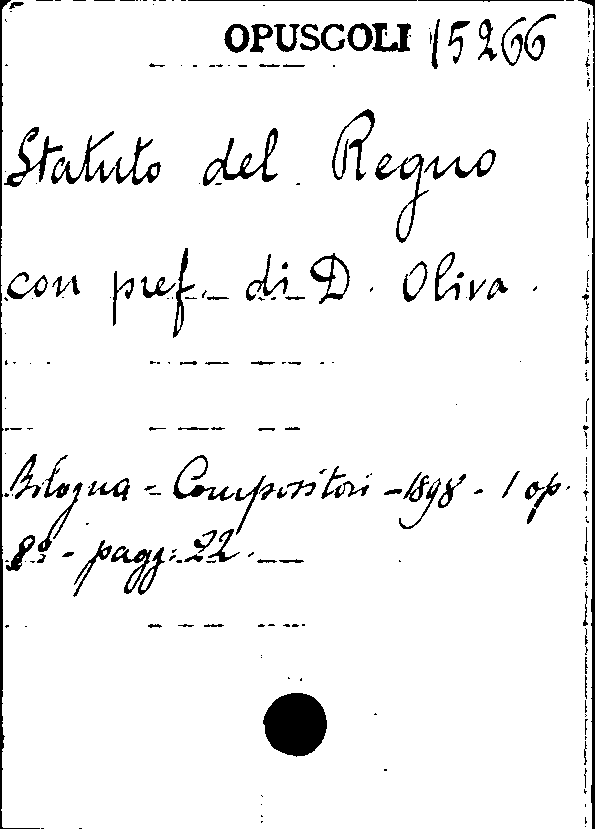 OPUSCOLI 15266
Statuto del Regno
con pref. di D. Oliva.
Bologna = Compositori - 1898 - 1 op.
8º - pagg: 22.